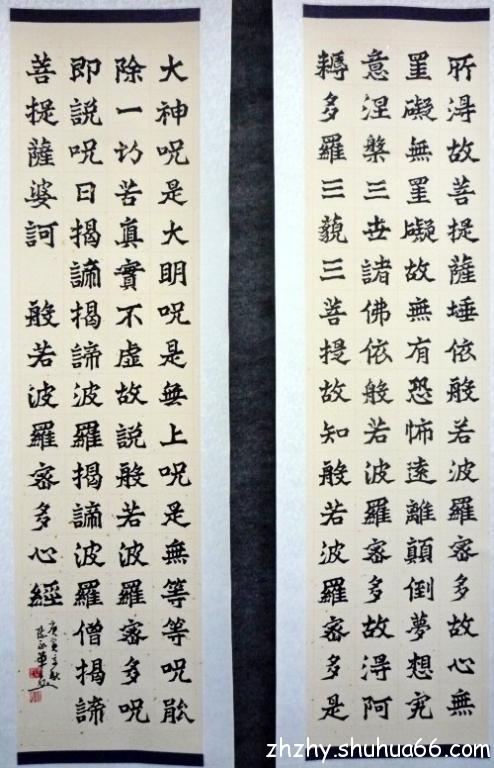 所淂故菩提薩埵依般若波羅蜜多故心無
罣礙無罣礙故無有恐怖遠離顛倒夢想究
意涅槃三世諸佛依般若波羅蜜多故淂阿
耨多羅三藐三菩提故知般若波羅蜜多是
大神呪是大明呪是無上呪是無等等呪能
除一切苦真實不虛故説般若波羅蜜多呪
即説呪曰揭諦揭諦波羅揭諦波羅僧揭諦
菩提薩婆訶 般若波羅蜜多心經
庚寅
zhzhy.shuhua66.com